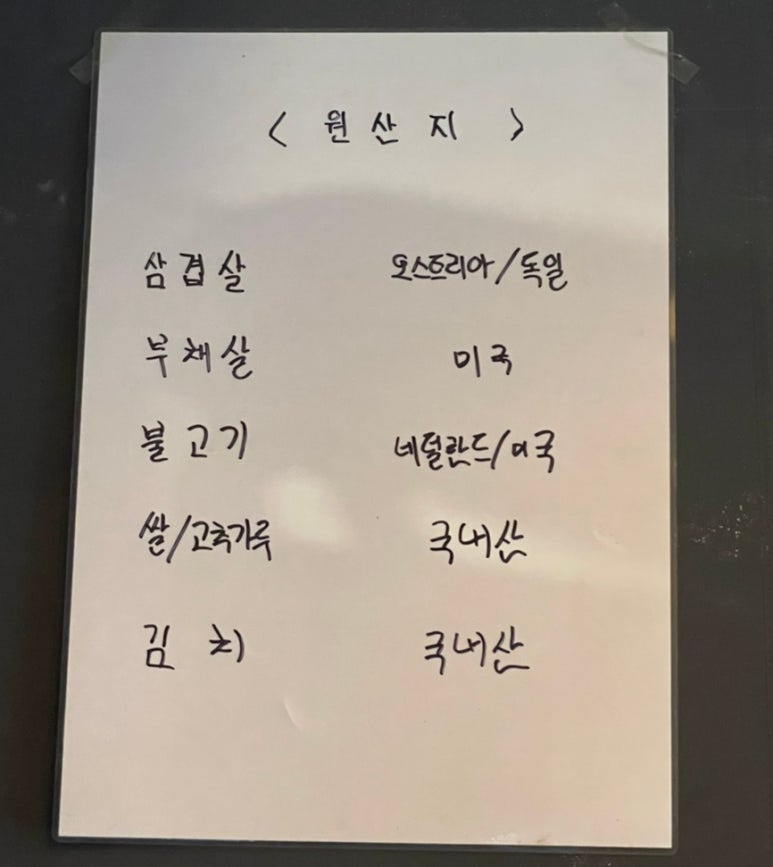 < 원 산 지 >
삼겹살 오스트리아/독일
부채살 미국
불고기 네덜란드/미국
쌀/고춧가루 국내산
김치 국내산